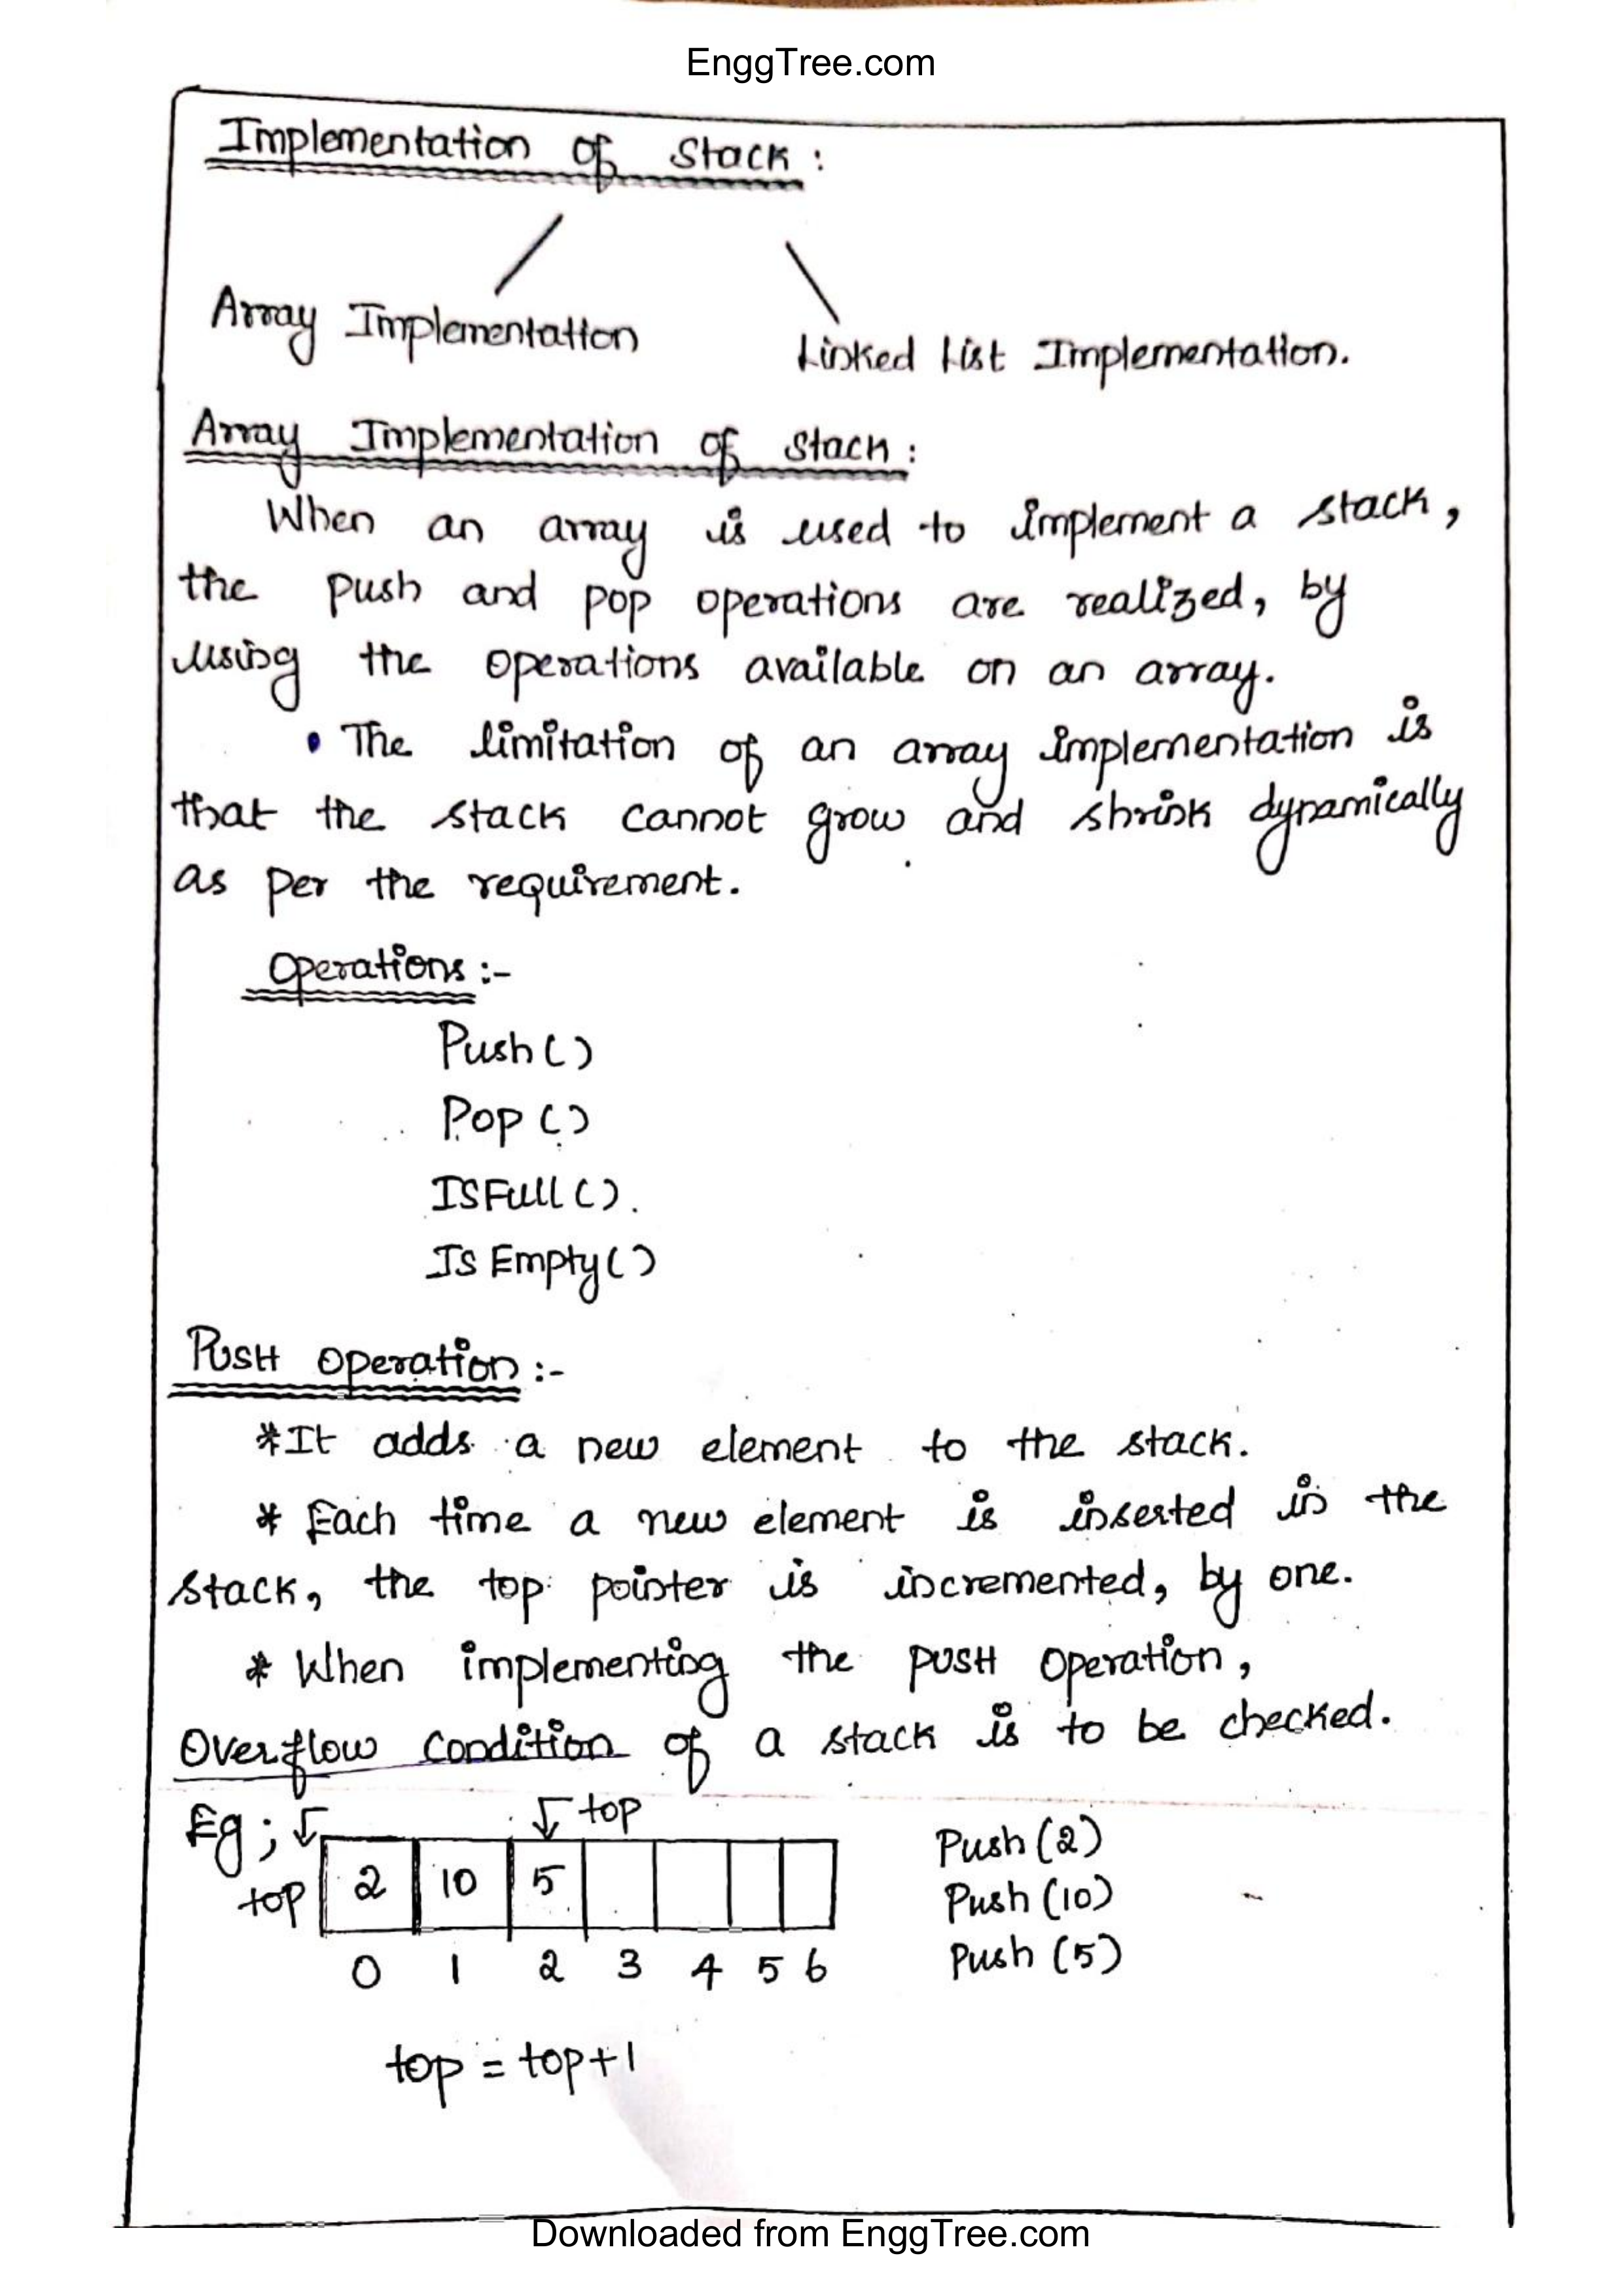 EnggTree.com
Implementation of Stack :
Array Implementation
Linked List Implementation.
Array Implementation of Stack :
When an array is used to implement a stack,
the push and pop operations are realized, by
using the operations available on an array.
• The limitation of an array implementation is
that the stack cannot grow and shrink dynamically
as per the requirement.
Operations :-
Push()
Pop ()
ISFull().
Is Empty()
PUSH operation :-
*It adds a new element to the stack.
* Each time a new element is inserted in the
stack, the top pointer is incremented, by one.
* When implementing the PUSH operation,
Overflow condition of a stack is to be checked.
Eg ; ↓ ↓ top
top 2 10 5
0 1 2 3 4 5 6
Push (2)
Push (10)
Push (5)
top = top+1
Downloaded from EnggTree.com